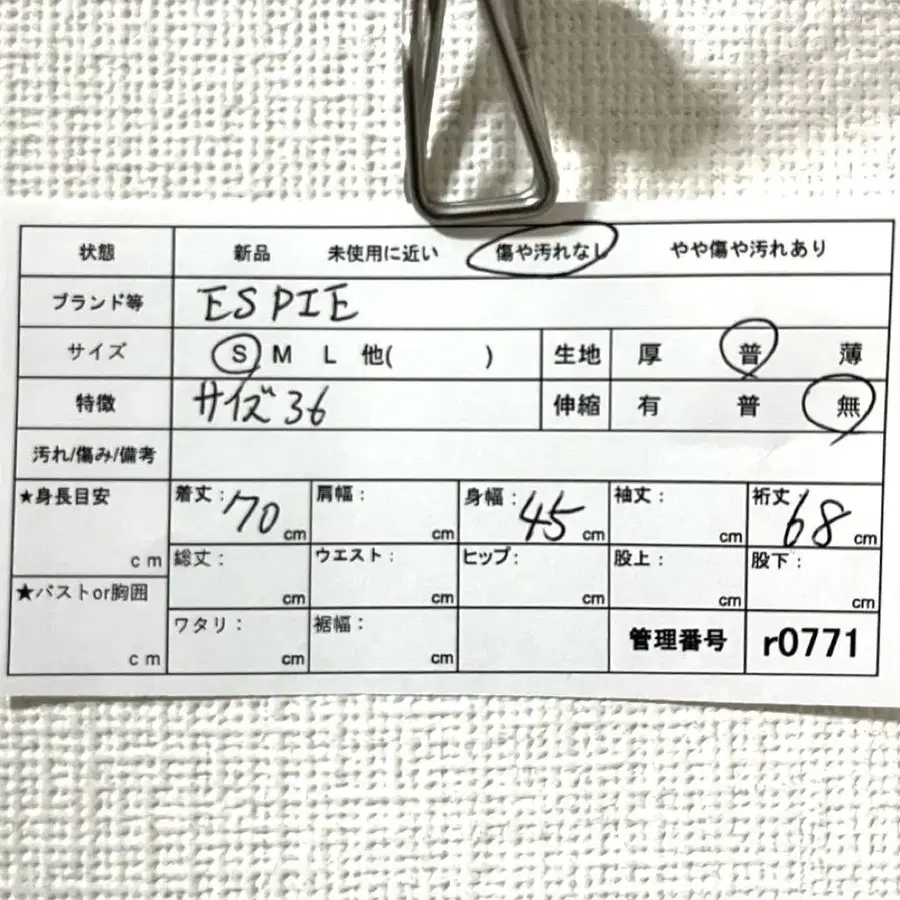 状態 新品 未使用に近い 傷や汚れなし やや傷や汚れあり
ブランド等 ESPIE
サイズ S M L 他( ) 生地 厚 普 薄
特徴 サイズ36 伸縮 有 普 無
汚れ/傷み/備考
★身長目安 cm 着丈：70cm 肩幅： cm 身幅：45cm 袖丈： cm 裄丈 68cm
総丈： cm ウエスト： cm ヒップ： cm 股上： cm 股下： cm
★バストor胸囲 cm ワタリ： cm 裾幅： cm 管理番号 r0771